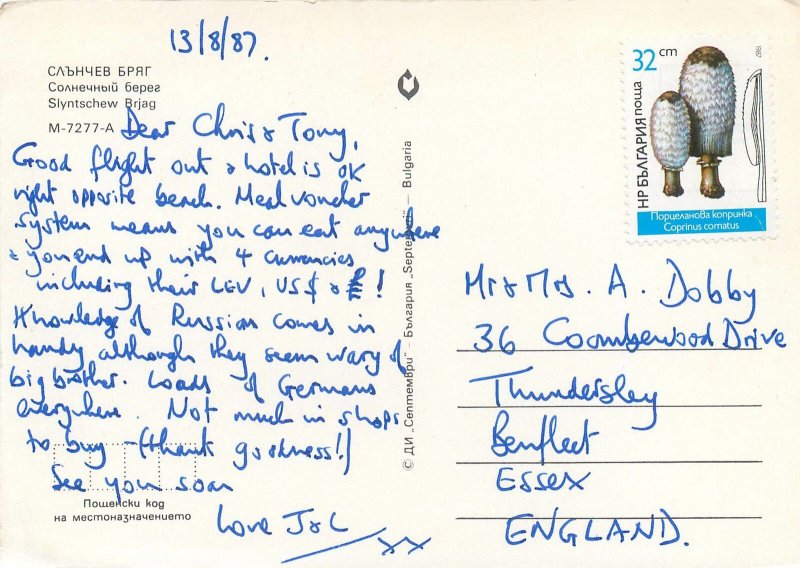 13/8/87.
СЛЪНЧЕВ БРЯГ
Солнечный берег
Slyntschew Brjag
М-7277-А
Dear Chris & Tony,
Good flight out & hotel is OK
right opposite beach. Meal voucher
system means you can eat anywhere
& you end up with 4 currencies
including their LEV, US$ & !
Knowledge of Russian comes in
handy although they seem wary of
big brother. Loads of Germans
everywhere. Not much in shops
to buy - (thank goodness!!)
See you soon
Love J & L
xx
Пощенски код
на местоназначението
© ДИ „Септември" — България „Septemvri" — Bulgaria
32 cm
1987
НР БЪЛГАРИЯ поща
Порцеланова копринка
Coprinus comatus
Mr & Mrs. A. Dobby
36 Coombewood Drive
Thundersley
Benfleet
ESSEX
ENGLAND.